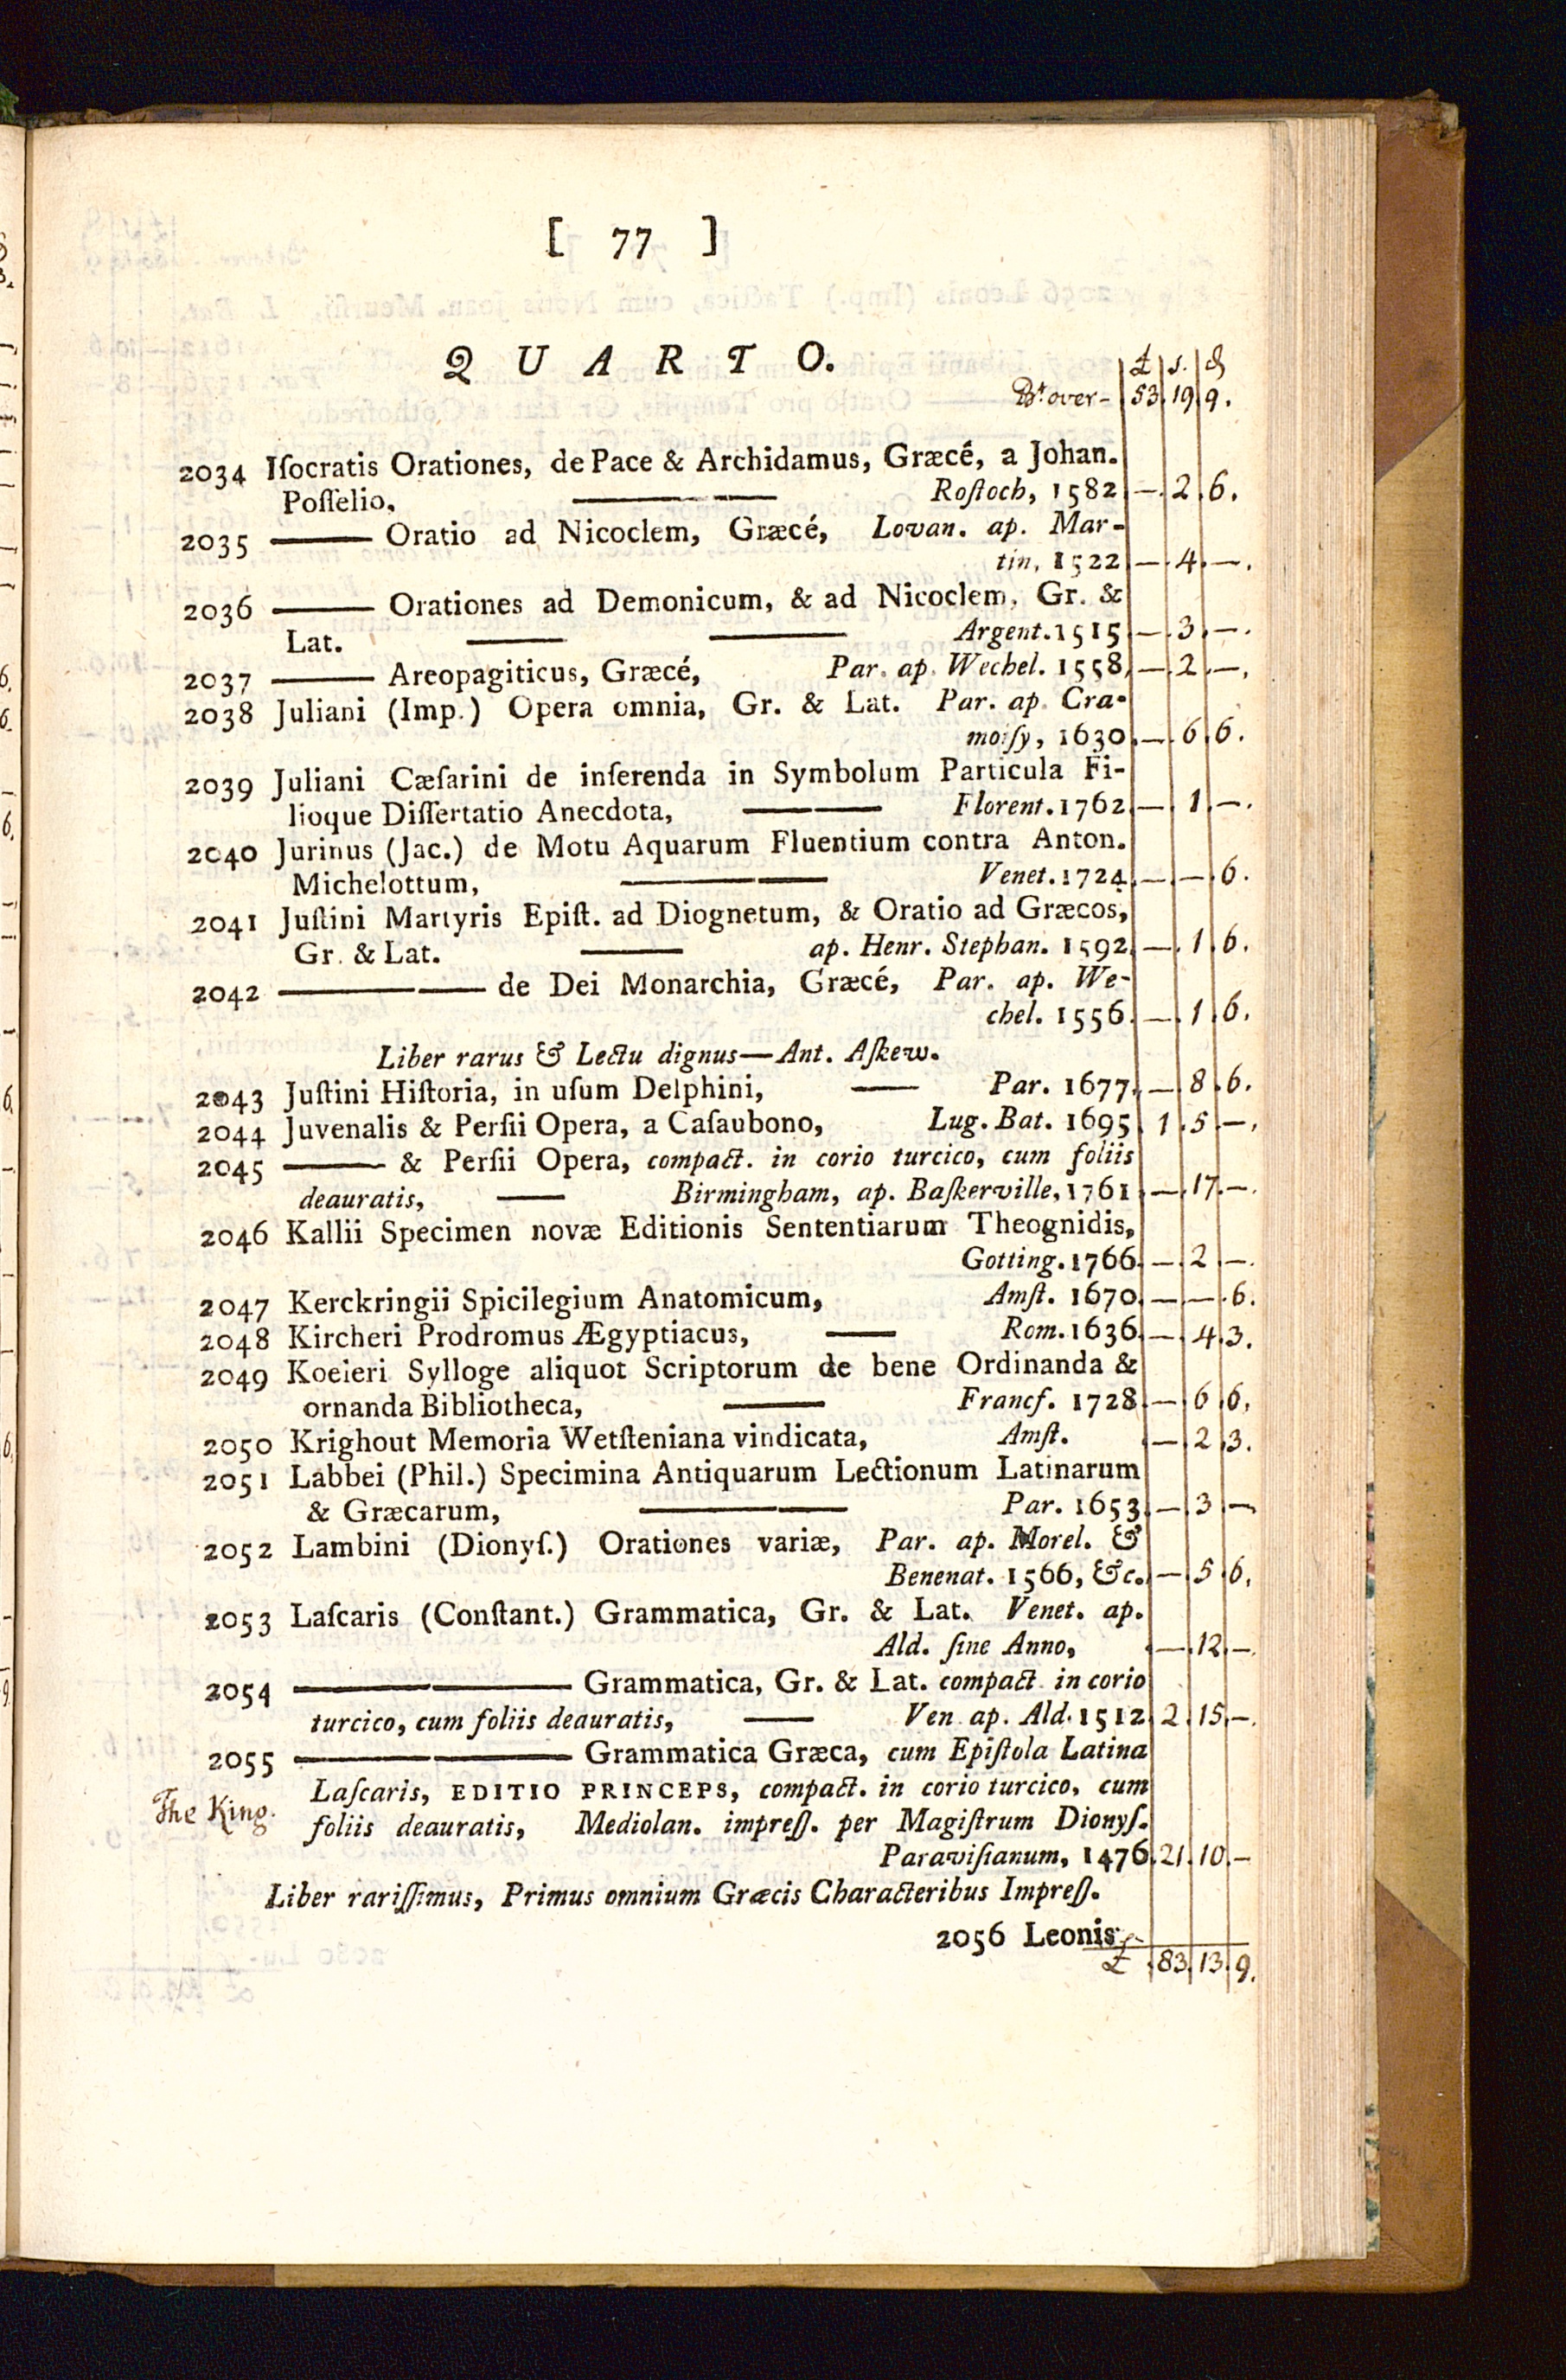 [ 77 ]
QUARTO.
£ s. d
Bt over - 53. 19. 9.
2034 Iſocratis Orationes, de Pace & Archidamus, Græcé, a Johan.
Poſſelio, Roſtoch, 1582. —. 2. 6.
2035 —— Oratio ad Nicoclem, Græcé, Lovan. ap. Mar-
tin, 1522 —. 4. —.
2036 —— Orationes ad Demonicum, & ad Nicoclem, Gr. &
Lat. Argent. 1515 —. 3. —.
2037 —— Areopagiticus, Græcé, Par. ap. Wechel. 1558. —. 2. —.
2038 Juliani (Imp.) Opera omnia, Gr. & Lat. Par. ap. Cra-
moiſy, 1630. —. 6. 6.
2039 Juliani Cæſarini de inſerenda in Symbolum Particula Fi-
lioque Diſſertatio Anecdota, —— Florent. 1762. —. 1. —.
2040 Jurinus (Jac.) de Motu Aquarum Fluentium contra Anton.
Michelottum, —— Venet. 1724. —. —. 6.
2041 Juſtini Martyris Epiſt. ad Diognetum, & Oratio ad Græcos,
Gr. & Lat. —— ap. Henr. Stephan. 1592. —. 1. 6.
2042 —— de Dei Monarchia, Græcé, Par. ap. We-
chel. 1556. —. 1. 6.
Liber rarus & Lectu dignus—Ant. Aſkew.
2043 Juſtini Hiſtoria, in uſum Delphini, —— Par. 1677. — 8. 6.
2044 Juvenalis & Perſii Opera, a Caſaubono, Lug. Bat. 1695. 1. 5. —.
2045 —— & Perſii Opera, compact. in corio turcico, cum foliis
deauratis, —— Birmingham, ap. Baſkerville, 1761. —. 17. —.
2046 Kallii Specimen novæ Editionis Sententiarum Theognidis,
Gotting. 1766. —. 2. —.
2047 Kerckringii Spicilegium Anatomicum, Amſt. 1670. —. —. 6.
2048 Kircheri Prodromus Ægyptiacus, —— Rom. 1636. —. 4. 3.
2049 Koeleri Sylloge aliquot Scriptorum de bene Ordinanda &
ornanda Bibliotheca, —— Francf. 1728. —. 6. 6.
2050 Krighout Memoria Wetſteniana vindicata, Amſt. —. 2. 3.
2051 Labbei (Phil.) Specimina Antiquarum Lectionum Latinarum
& Græcarum, —— Par. 1653. —. 3. —
2052 Lambini (Dionyſ.) Orationes variæ, Par. ap. Morel. &
Benenat. 1566, &c. —. 5. 6.
2053 Laſcaris (Conſtant.) Grammatica, Gr. & Lat. Venet. ap.
Ald. ſine Anno, —. 12. —.
2054 —— Grammatica, Gr. & Lat. compact. in corio
turcico, cum foliis deauratis, —— Ven. ap. Ald. 1512. 2. 15. —.
2055 —— Grammatica Græca, cum Epiſtola Latina
The King. Laſcaris, EDITIO PRINCEPS, compact. in corio turcico, cum
foliis deauratis, Mediolan. impreſſ. per Magiſtrum Dionyſ.
Paraviſianum, 1476. 21. 10. —
Liber rariſſimus, Primus omnium Græcis Characteribus Impreſſ.
2056 Leonis
£ 83. 13. 9.